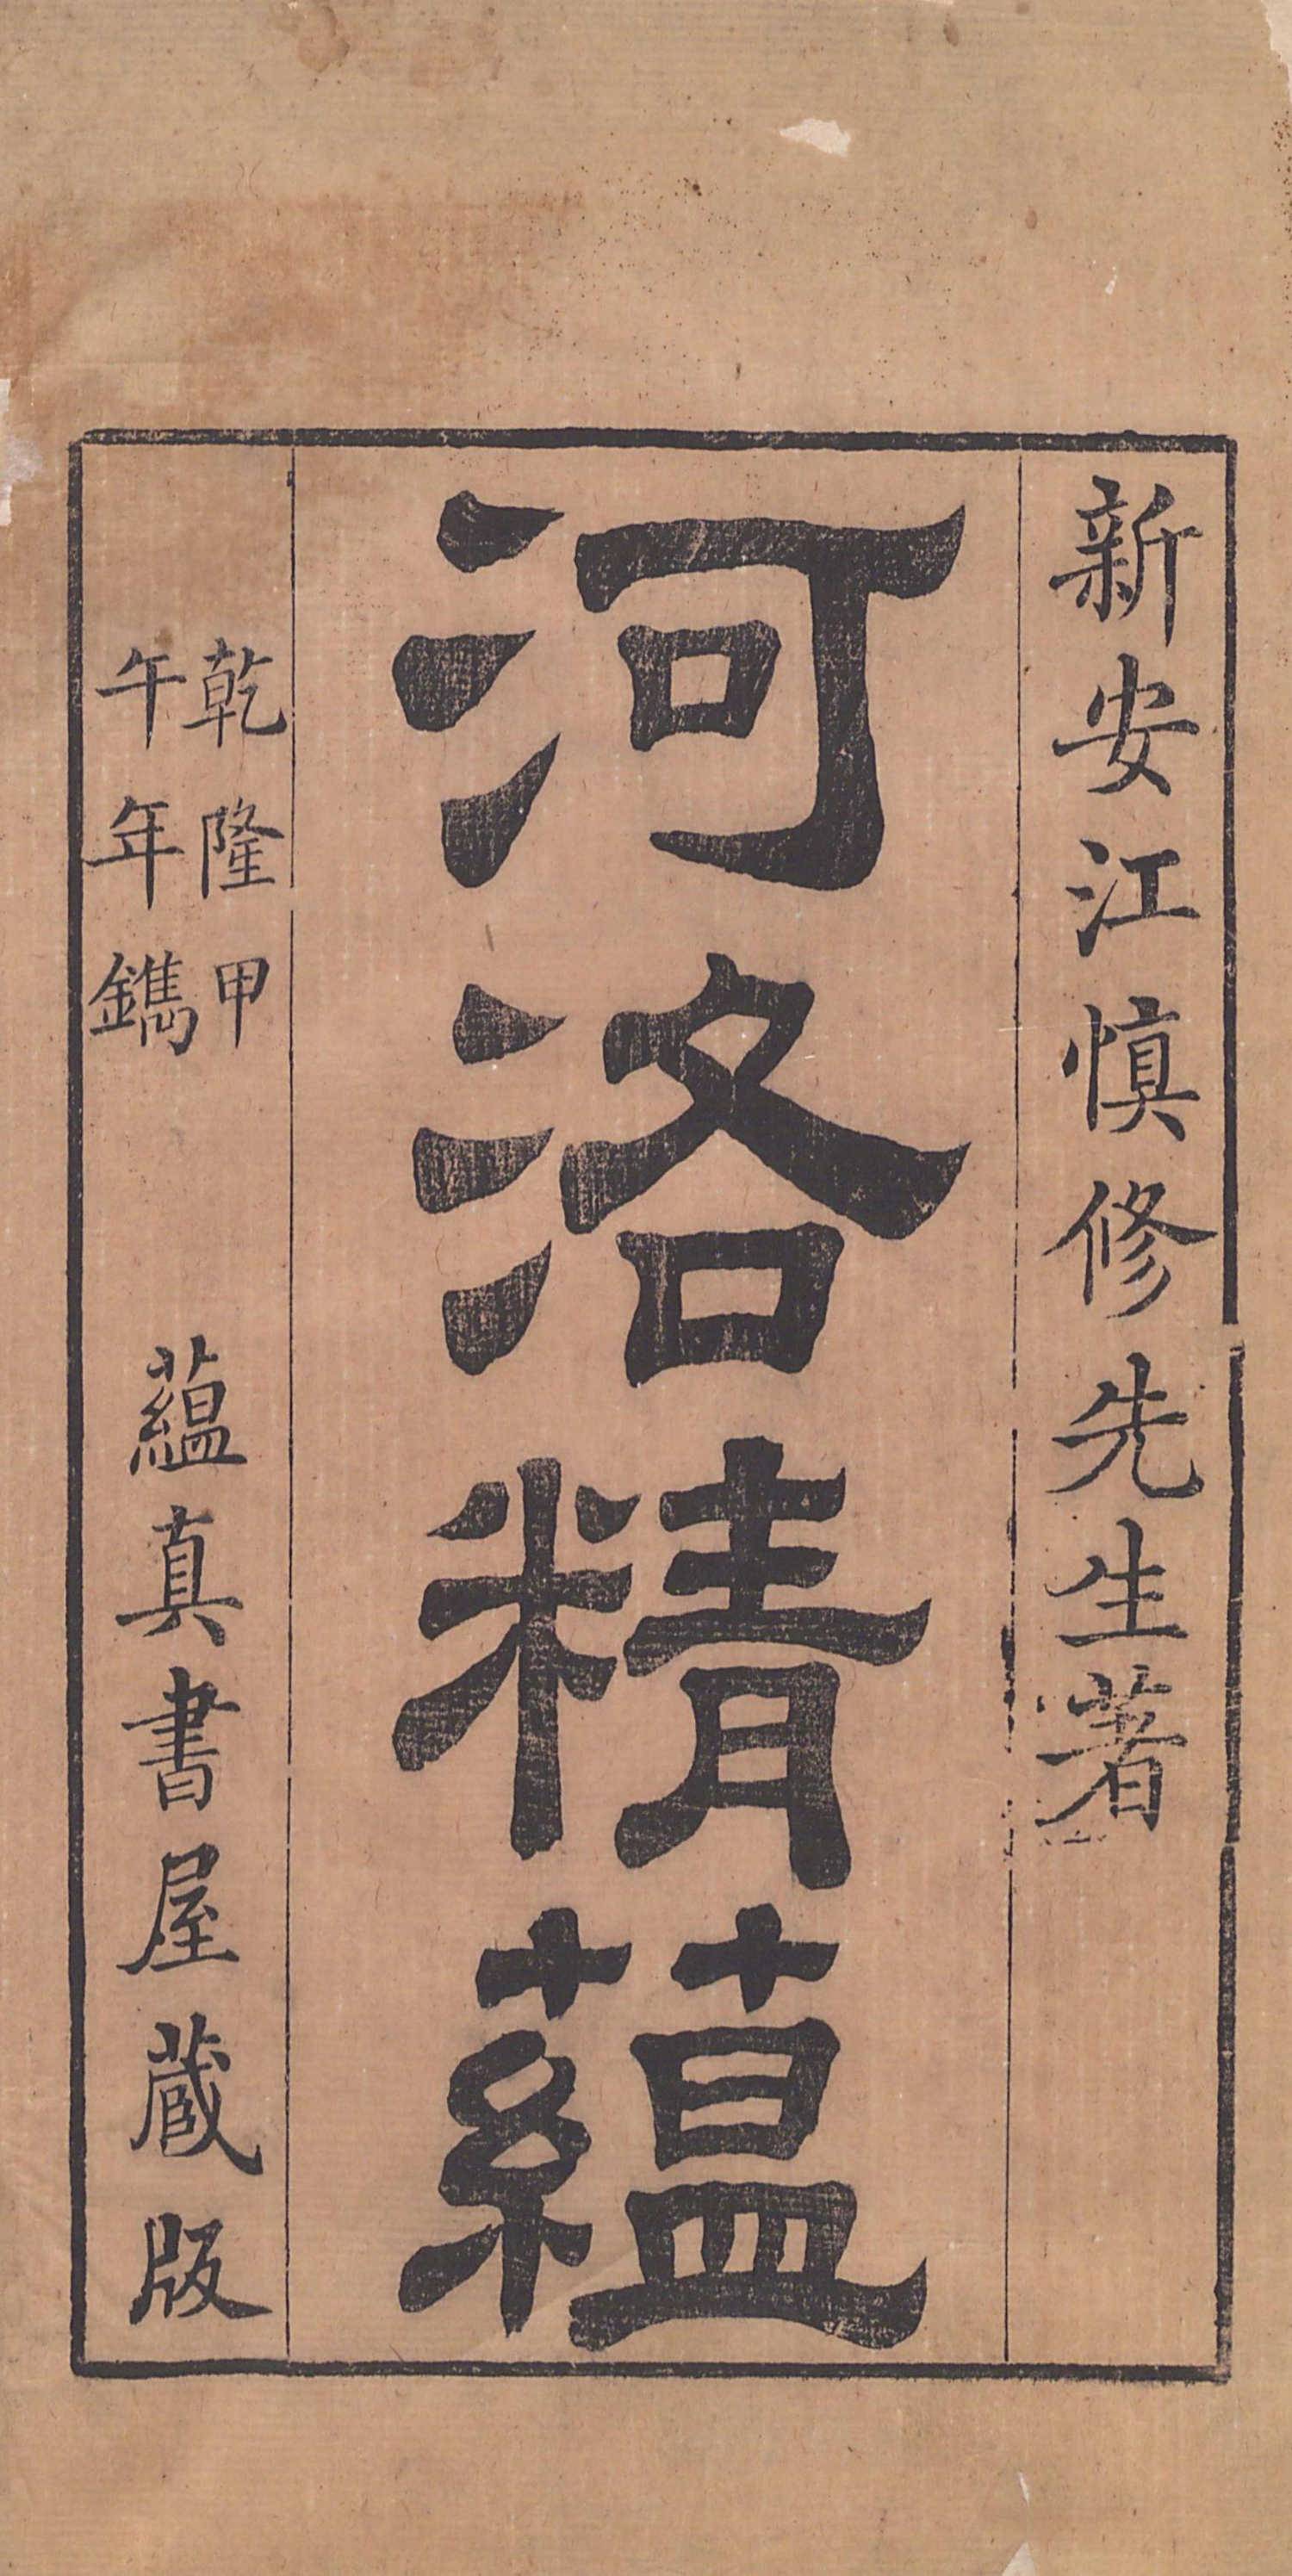 新安江慎修先生著
河洛精蘊
乾隆甲
午年鐫
蘊真書屋藏版